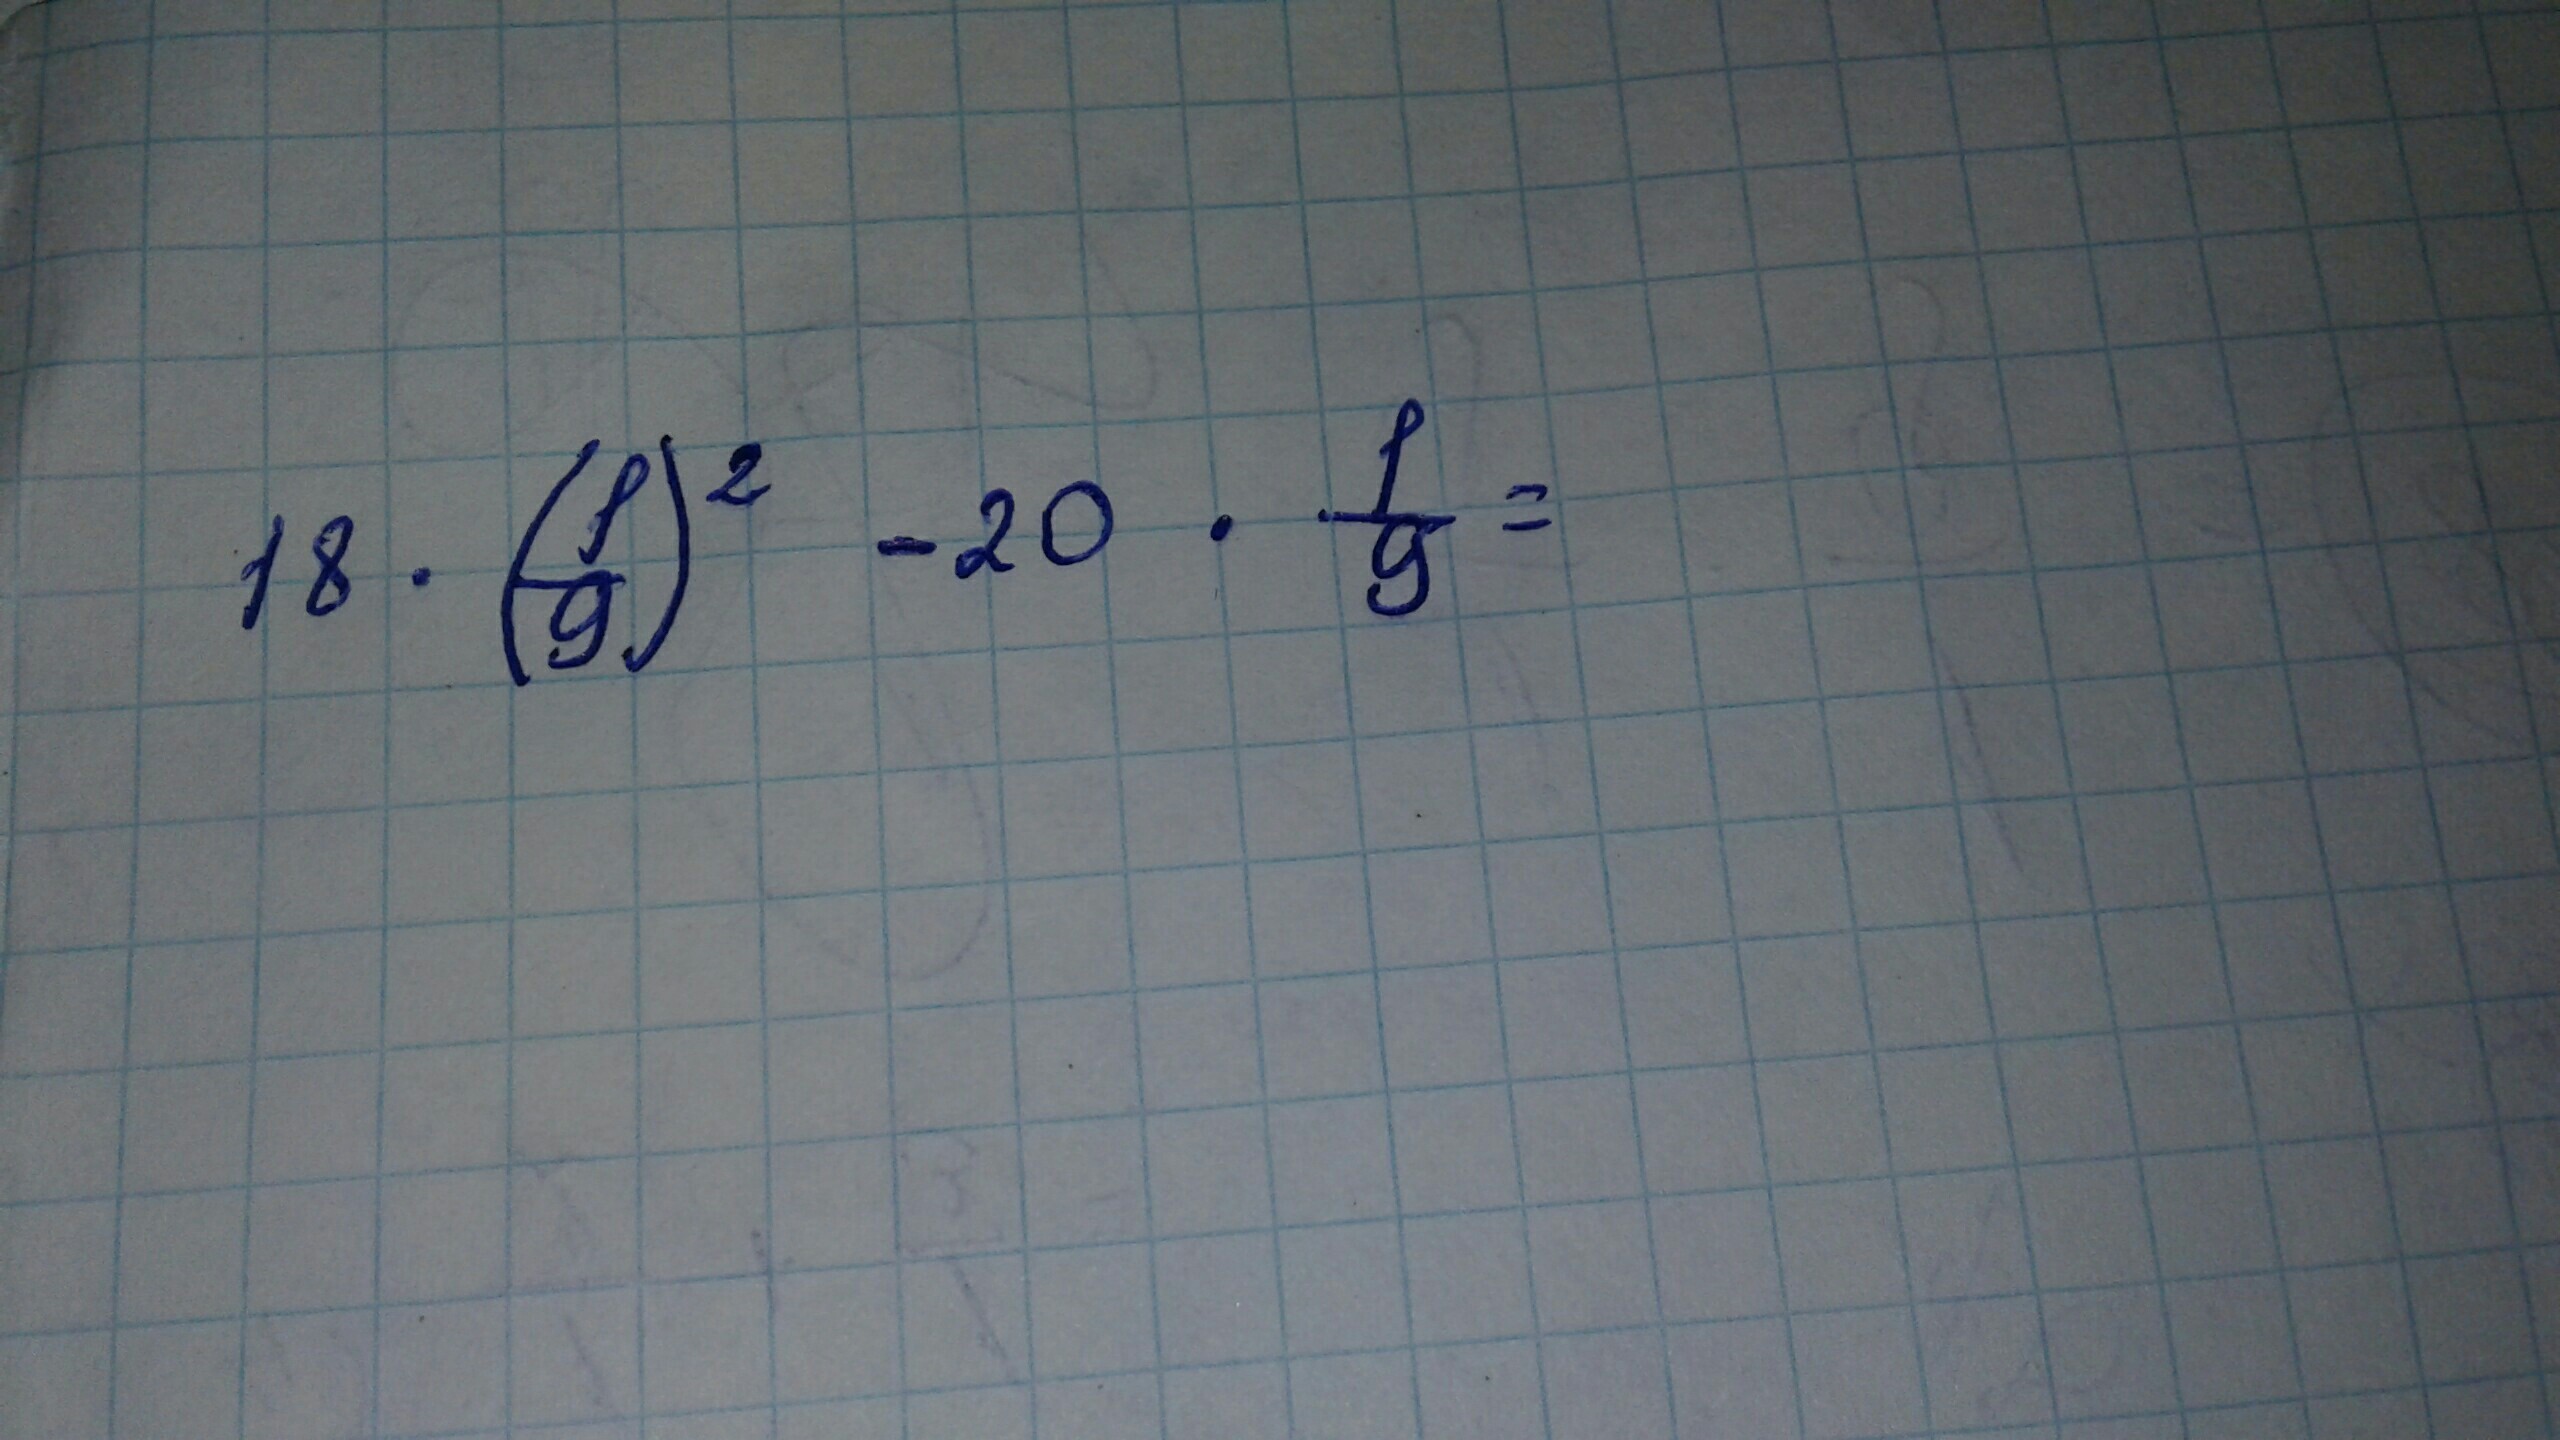 18 · (1/9)² - 20 · 1/9 =